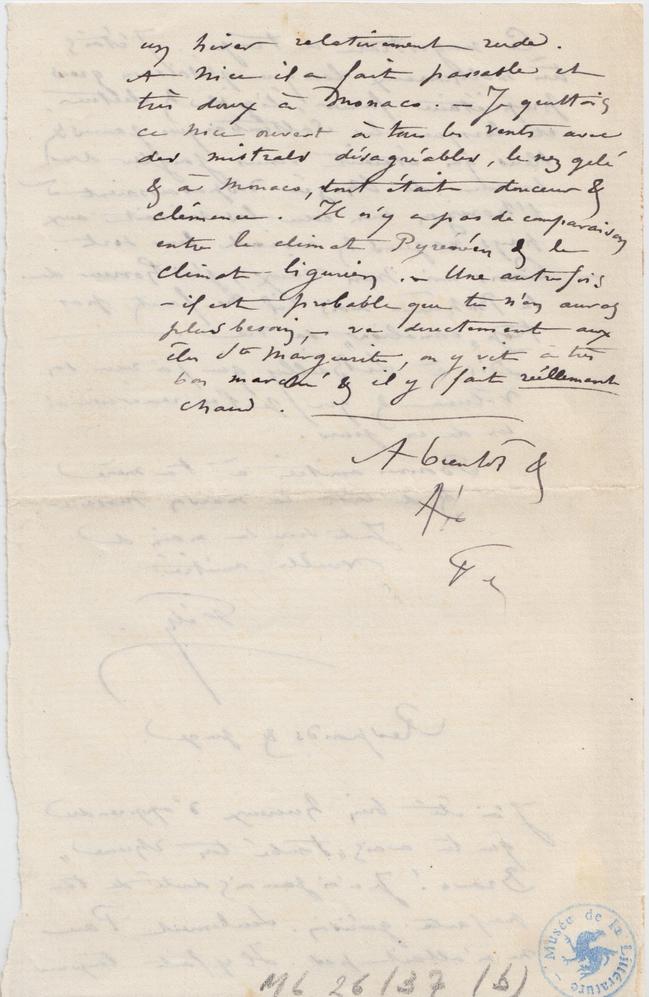 un hiver relativement rude.
A Nice il a fait passable et
très doux à Monaco. – Je quittais
ce Nice ouvert à tous les vents avec
des mistrals désagréables, le nez gelé
& à Monaco, tout était douceur &
clémence. Il n'y a pas de comparaison
entre le climat Pyrenéen & le
climat ligurien. – Une autre fois
– il est probable que tu n'en auras
plus besoin, – va directement aux
îles Ste Marguerite, on y vit à très
bon marché & il y fait réellement
chaud.
A bientôt &
Musée de la Littérature
ML 26/37 (b)